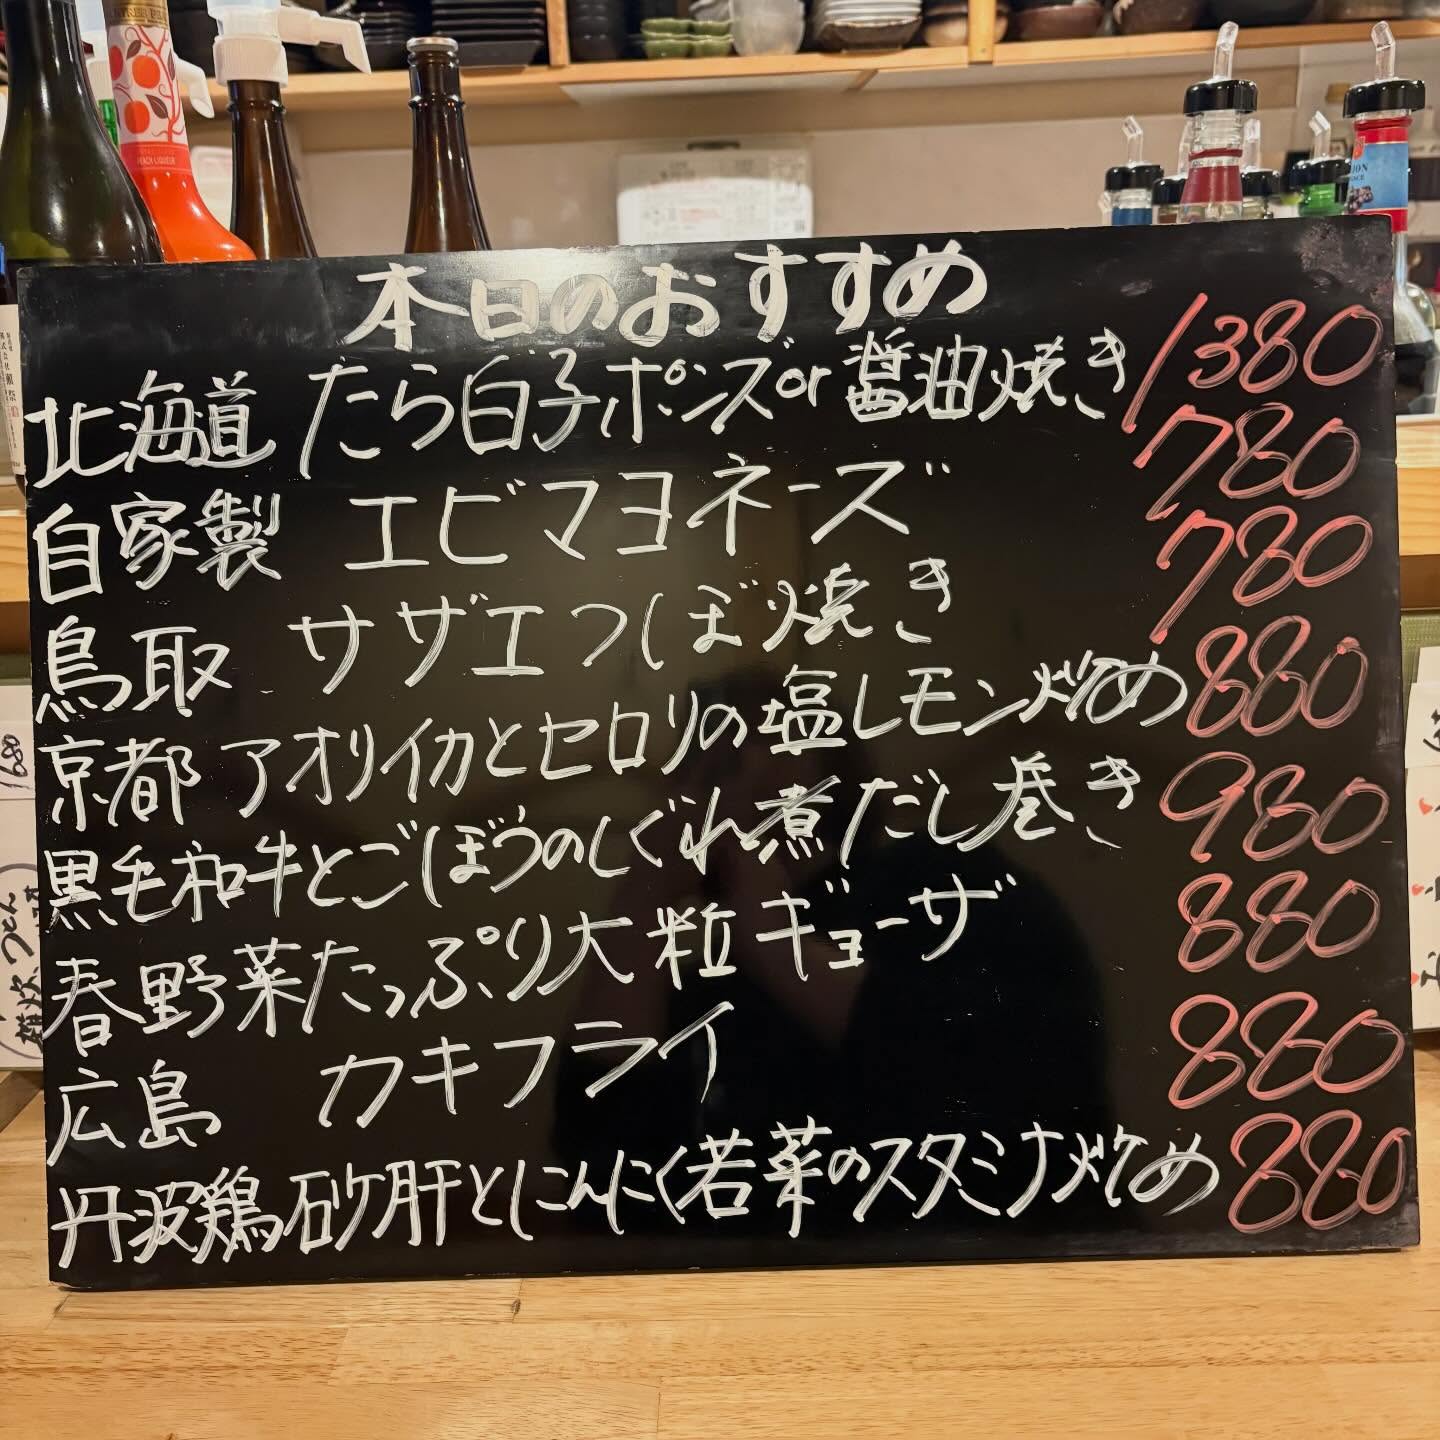 本日のおすすめ
北海道 たら白子ポンズor醤油焼き 1380
自家製 エビマヨネーズ 780
鳥取 サザエつぼ焼き 780
京都 アオリイカとセロリの塩レモン炒め 880
黒毛和牛とごぼうのしぐれ煮だし巻き 980
春野菜たっぷり大粒ギョーザ 880
広島 カキフライ 880
丹波鶏砂肝とにんにく若菜のスタミナ炒め 880
PEACH LIQUEUR
1680